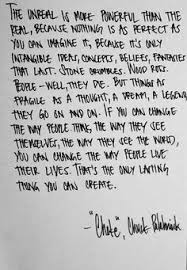 THE UNREAL IS MORE POWERFUL THAN THE
REAL, BECAUSE NOTHING IS AS PERFECT AS
YOU CAN IMAGINE IT, BECAUSE IT'S ONLY
INTANGIBLE IDEAS, CONCEPTS, BELIEFS, FANTASIES
THAT LAST. STONE CRUMBLES. WOOD ROTS.
PEOPLE - WELL, THEY DIE. BUT THINGS AS
FRAGILE AS A THOUGHT, A DREAM, A LEGEND,
THEY GO ON AND ON. IF YOU CAN CHANGE
THE WAY PEOPLE THINK, THE WAY THEY SEE
THEMSELVES, THE WAY THEY SEE THE WORLD,
YOU CAN CHANGE THE WAY PEOPLE LIVE
THEIR LIVES. THAT'S THE ONLY LASTING
THING YOU CAN CREATE.
- "Choke", Chuck Palahniuk